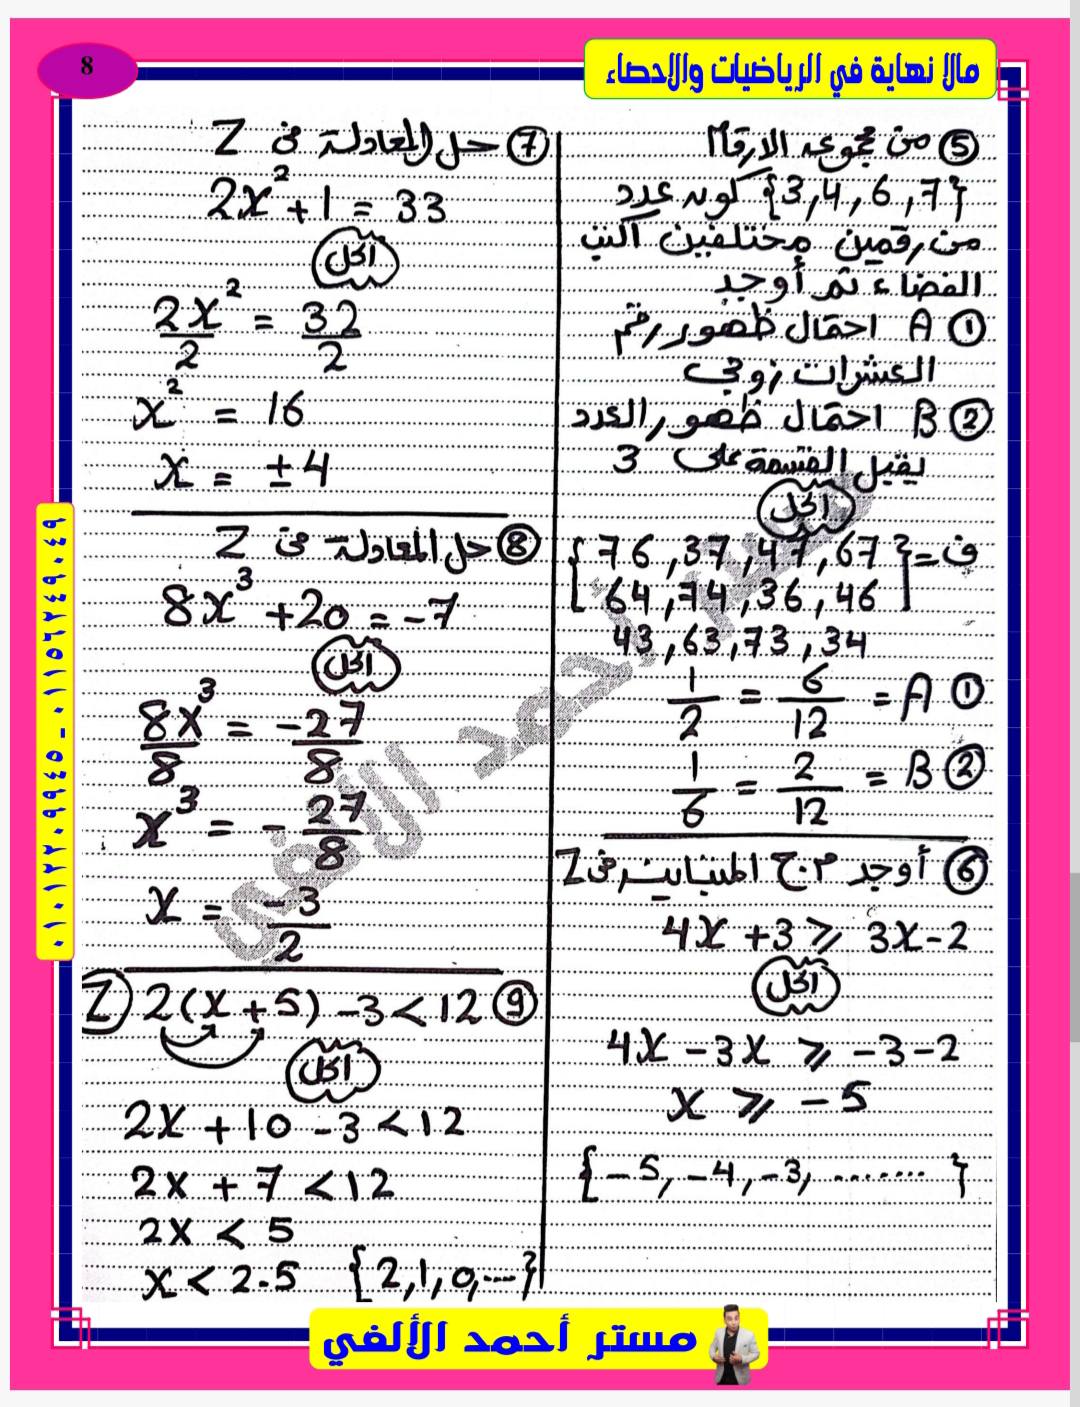 8
مالا نهاية في الرياضيات والاحصاء
⑤ من مجموعة الارقام
{3,4,6,7} كون عدد
من رقمين مختلفين اكتب
الفضاء ثم أوجد
① A احتمال ظهور رقم
العشرات زوجى
② B احتمال ظهور العدد
يقبل القسمة على 3
الحل
ف = {76, 37, 47, 67
64, 74, 36, 46
43, 63, 73, 34}
① A = 6/12 = 1/2
② B = 2/12 = 1/6
⑥ أوجد م.ح المتباينة فى Z
4x + 3 ⩾ 3x - 2
الحل
4x - 3x ⩾ -3 - 2
x ⩾ -5
{-5, -4, -3, .......}
⑦ حل المعادلة فى Z
2x² + 1 = 33
الحل
2x²/2 = 32/2
x² = 16
x = ±4
⑧ حل المعادلة فى Z
8x³ + 20 = -7
الحل
8x³/8 = -27/8
x³ = -27/8
x = -3/2
⑨ 2(x + 5) - 3 < 12 Z
الحل
2x + 10 - 3 < 12
2x + 7 < 12
2x < 5
x < 2.5 {2, 1, 0, ...}
٠١٠١٢٢٠٩٩٤٥ - ٠١١٥٦٢٤٩٠٤٩
مستر أحمد الألفي
مستر أحمد الألفي